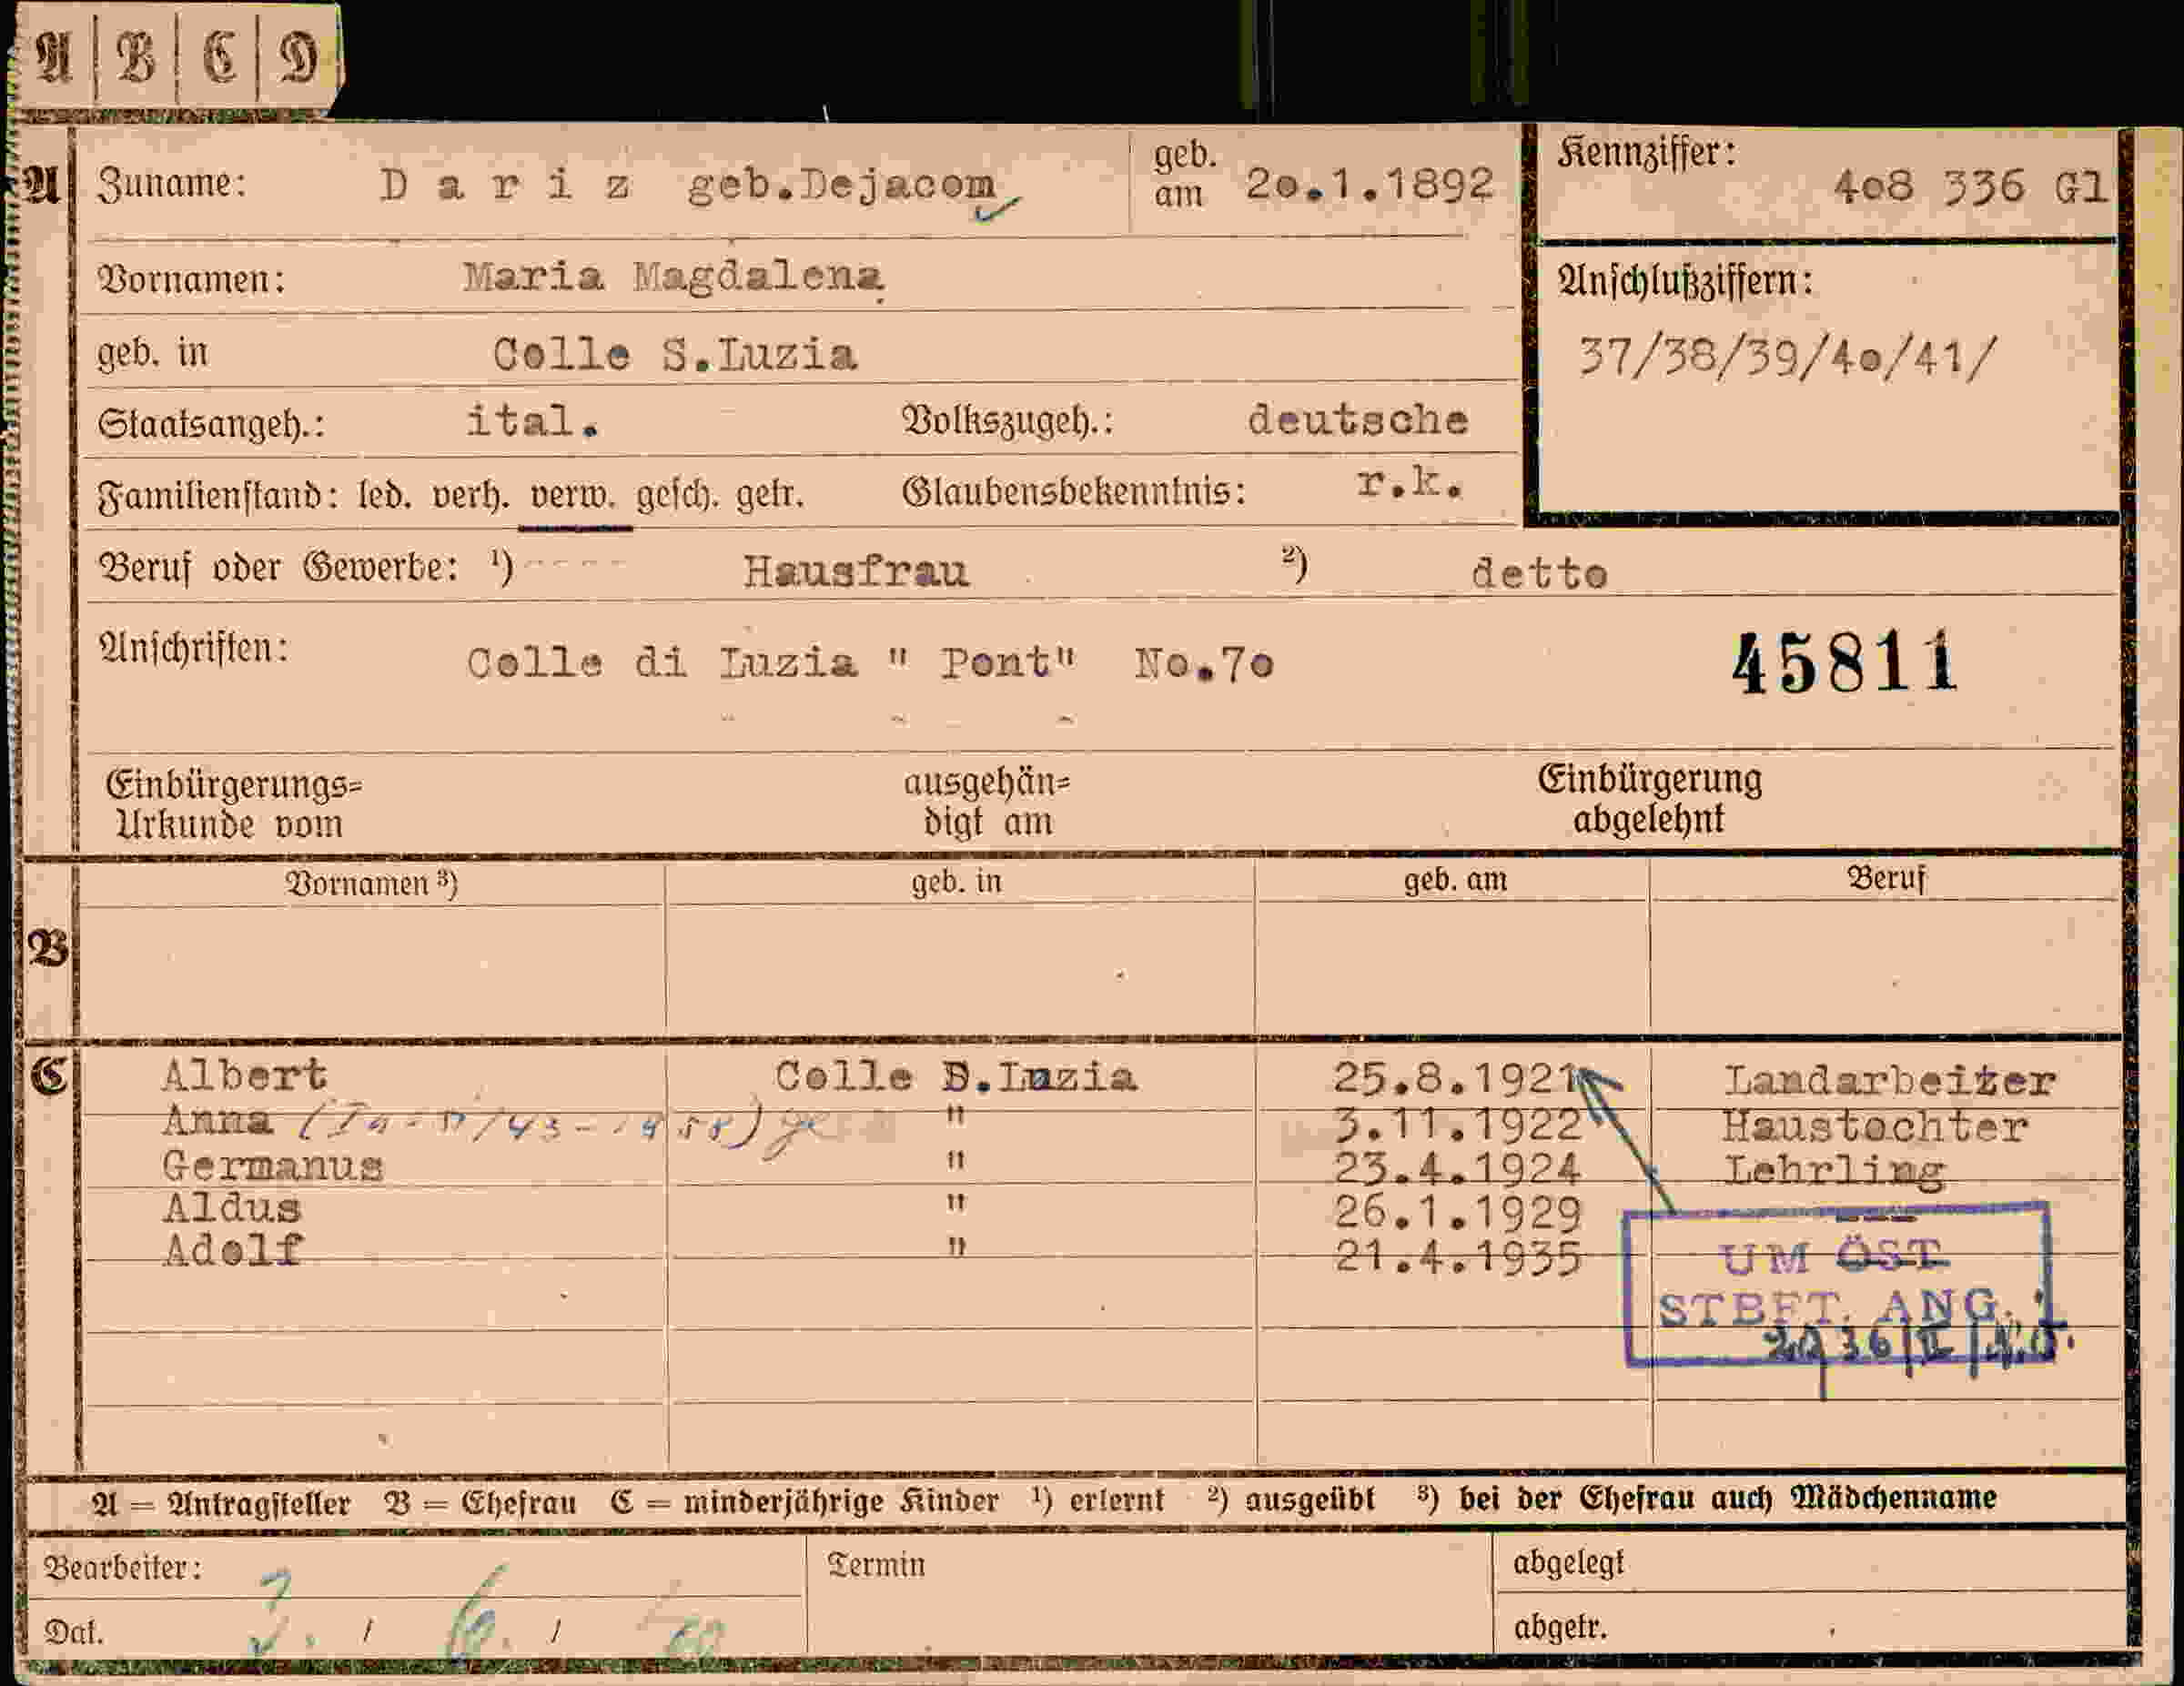 A | B | C | D
A Zuname: D a r i z geb.Dejacom geb. am 20.1.1892 Kennziffer: 408 336 Gl
Vornamen: Maria Magdalena Anschlußziffern:
geb. in Colle S.Luzia 37/38/39/40/41/
Staatsangeh.: ital. Volkszugeh.: deutsche
Familienstand: led. verh. verw. gesch. getr. Glaubensbekenntnis: r.k.
Beruf oder Gewerbe: ¹) ---- Hausfrau ²) detto
Anschriften: Colle di Luzia " Pont" No.70 45811
Einbürgerungs= ausgehän= Einbürgerung
Urkunde vom digt am abgelehnt
B Vornamen ³) geb. in geb. am Beruf
C Albert Colle S.Luzia 25.8.1921 Landarbeiter
Anna " 3.11.1922 Haustochter
Germanus " 23.4.1924 Lehrling
Aldus " 26.1.1929 ---
Adolf " 21.4.1935
UM ÖST
STBFT. ANG.
A = Antragsteller B = Ehefrau C = minderjährige Kinder ¹) erlernt ²) ausgeübt ³) bei der Ehefrau auch Mädchenname
Bearbeiter: Termin abgelegt
Dat. abgetr.